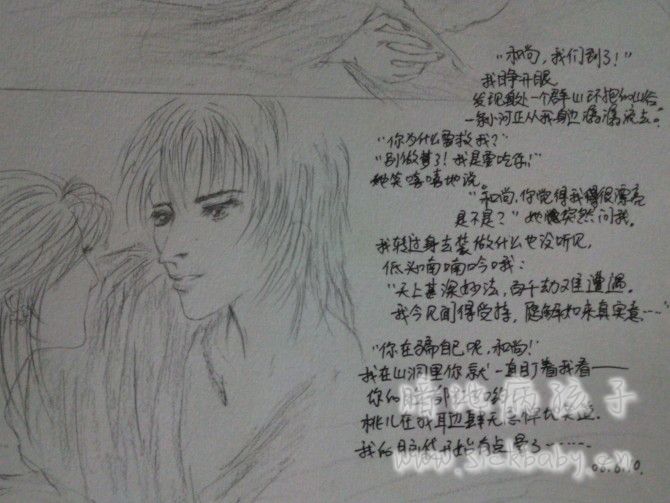 "和尚，我们到了！"
我睁开眼
发现身处一个群山环抱的山谷
一条小河正从我身边潺潺流去。
"你为什么要救我？"
"别做梦了！我是要吃你！"
她笑嘻嘻地说。
"和尚，你觉得我长得很漂亮
是不是？" 她突然问我。
我转过身去装做什么也没听见，
低头喃喃吟哦：
"无上甚深妙法，百千劫难遭遇。
我今见闻得受持，愿解如来真实意……"
"你在骗自己呢，和尚！"
我在山洞里你就一直盯着我看——
你的
桃儿在我耳边
我的 开始有点晕了……
06.6.10.
病孩子
www.sickbaby.cn